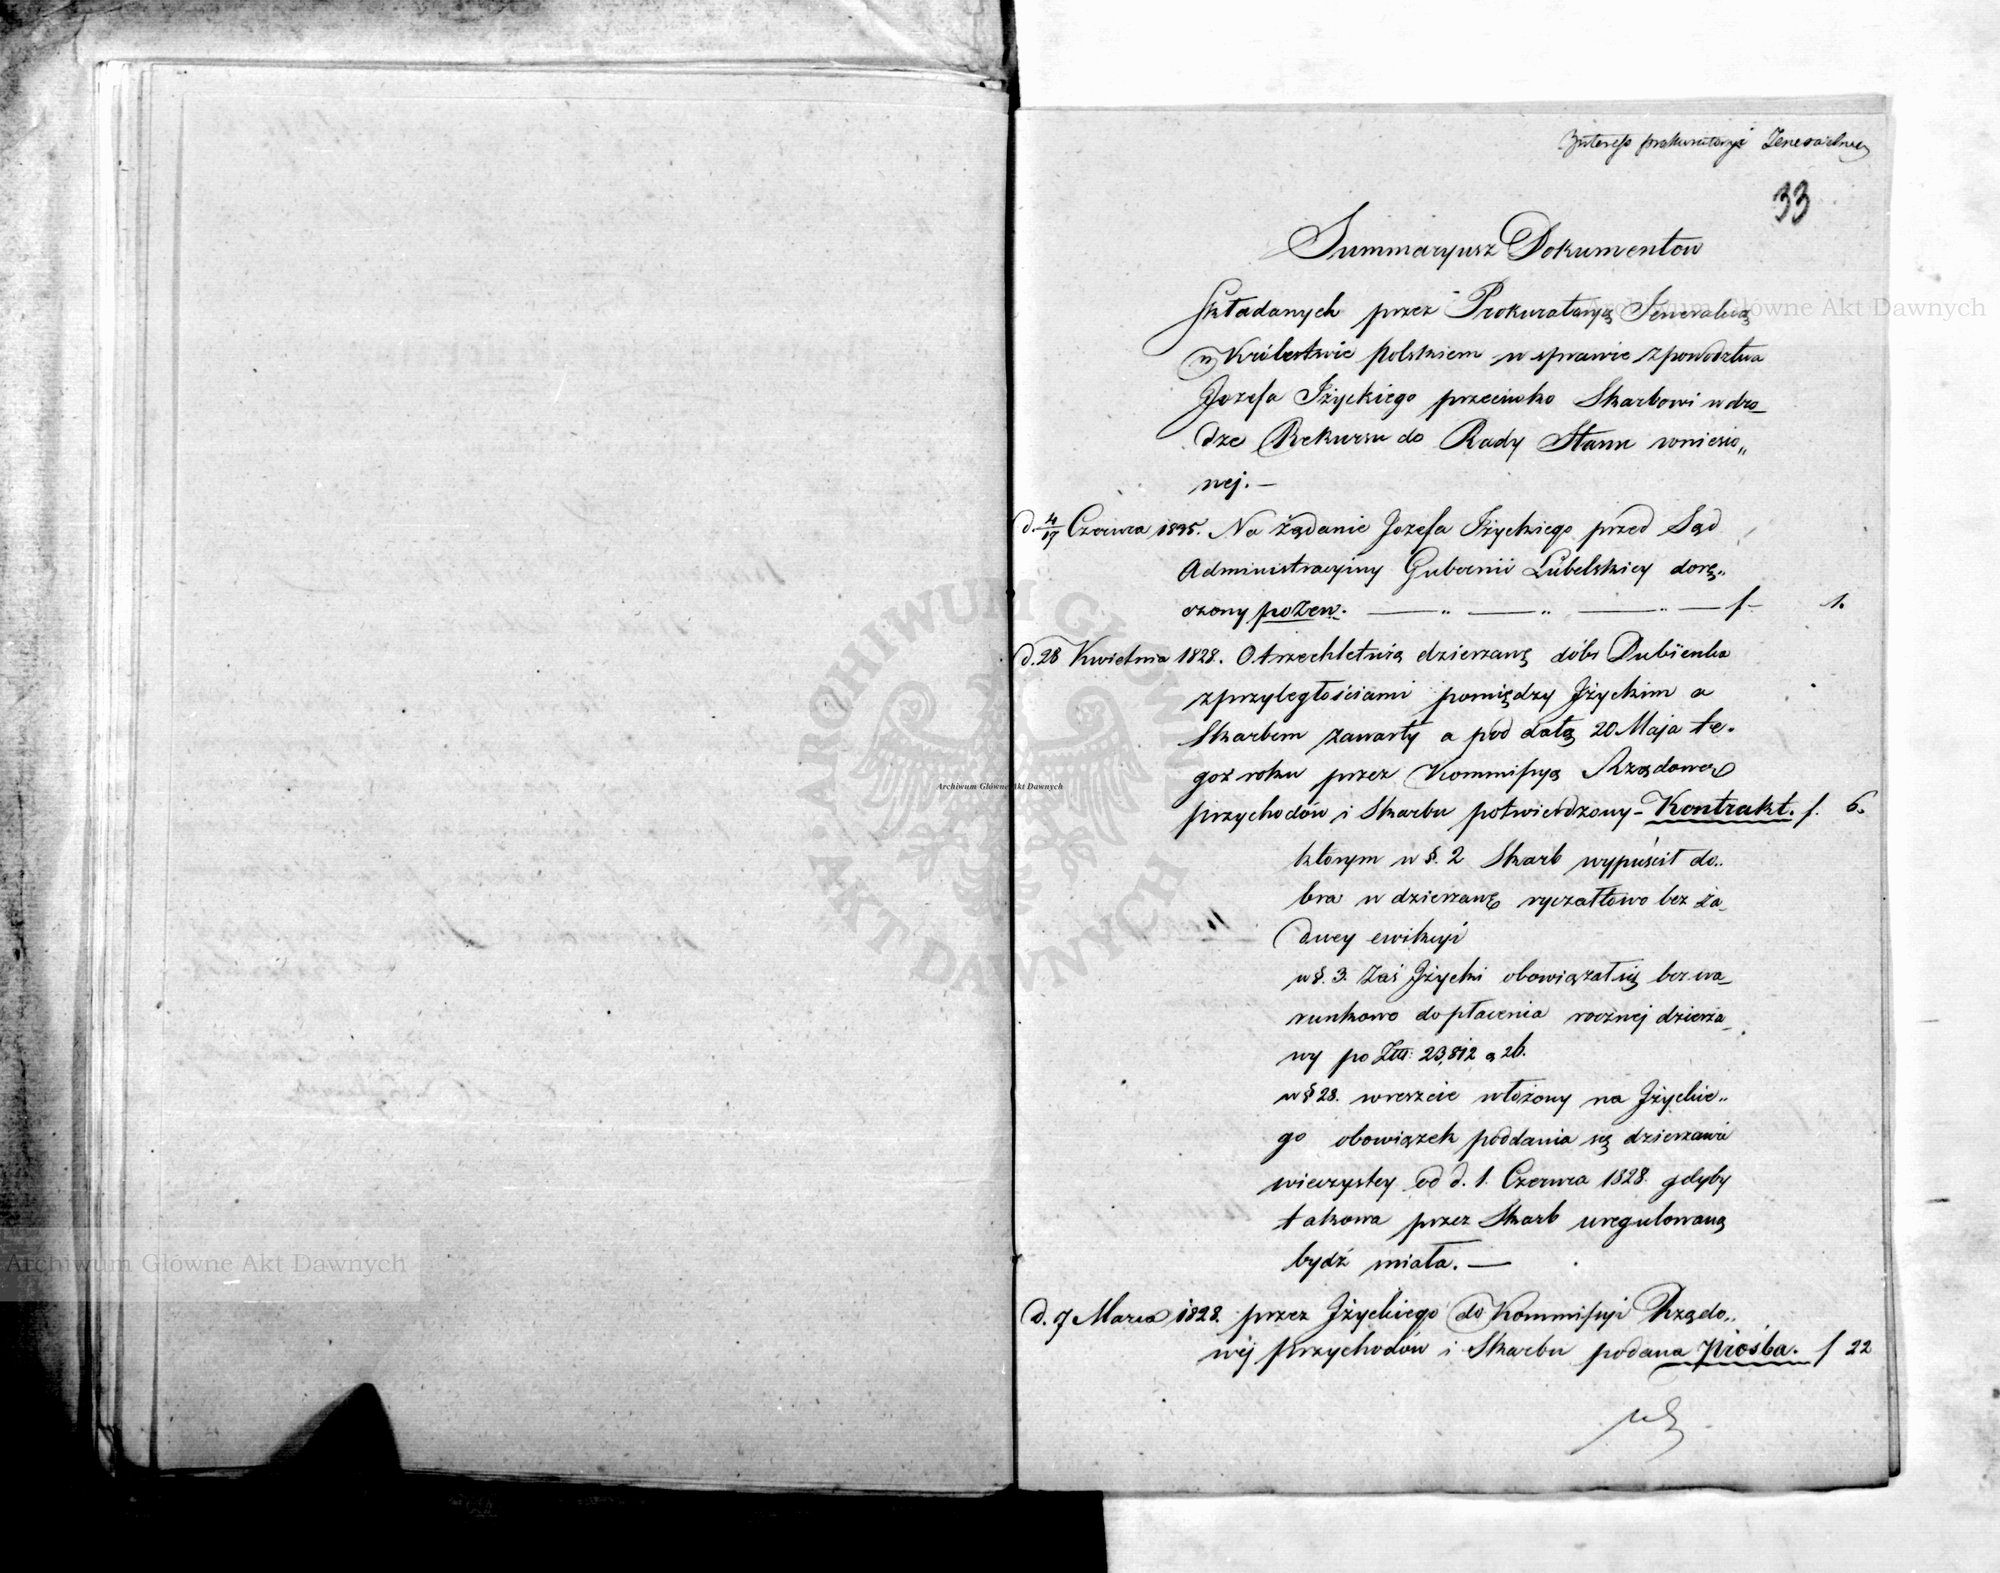 Interess prokuratoryi Jeneralney
33
Summaryusz Dokumentow
składanych przez Prokuratoryą Jeneralną
w Królestwie Polskiem w sprawie z powodztwa
Jozefa Iżyckiego przeciwko Skarbowi w dro-
dze Rekursu do Rady Stanu wniesio„
nej. —
d. 4/17 Czerwca 1835. Na żądanie Jozefa Iżyckiego przed Sąd
Administracyiny Gubernii Lubelskiey dorę„
czony pozew. — „ — „ — „ — f — 1.
d. 28 Kwietnia 1828. O trzechletnią dzierzawę dóbr Dubienka
z przyległościami pomiędzy Iżyckim a
Skarbem zawarty a pod datą 20 Maja te.
goż roku przez Kommissyą Rządową
przychodów i Skarbu potwierdzony — Kontrakt. f. 6.
którym w §. 2 Skarb wypuścił do„
bra w dzierzawę ryczałtowo bez ża„
dney ewikcyi
w §. 3. Zaś Iżycki obowiązał się bezwa„
runkowo do płacenia rocznej dzierża„
wy po Złł: 23,812 g 26.
w § 28. wreszcie włożony na Iżyckie„
go obowiązek poddania się dzierzawie
wieczystey od d. 1. Czerwca 1828. gdyby
takowa przez Skarb uregulowaną
bydź miała. —
d. 7 Marca 1828. przez Iżyckiego do Kommissyi Rządo„
wéj przychodów i Skarbu podana Prośba. f 22
Archiwum Główne Akt Dawnych
Archiwum Główne Akt Dawnych
Archiwum Główne Akt Dawnych
ARCHIWUM GŁÓWNE AKT DAWNYCH